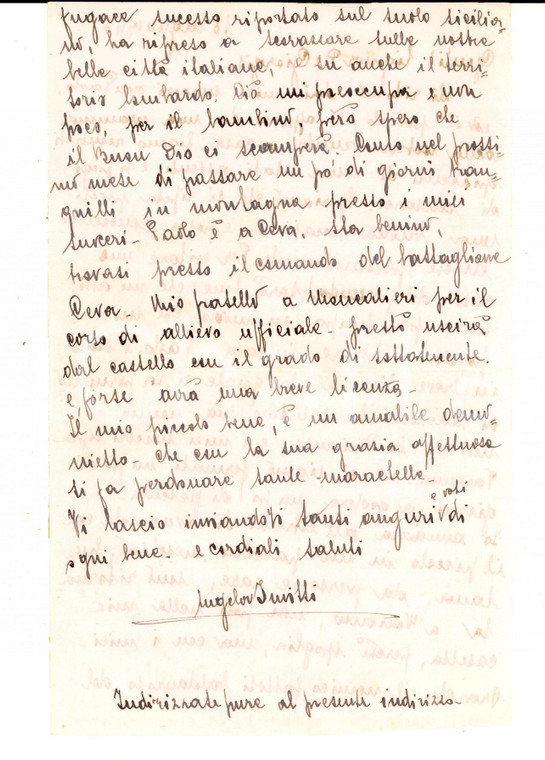 fugace sucesso riportato sul suolo sicilia-
no, ha ripreso a scorassare sulle nostre
belle città italiane, e su anche il terri-
torio lombardo. Ciò mi preoccupa e non
poco, per il bambino, però spero che
il Buon Dio ci scamperà. Conto nel prossi-
mo mese di passare un pò di giorni tran-
quilli in montagna presso i miei
suoceri - Paolo è a Ceva. Sta benino,
trovasi presso il comando del battaglione
Ceva - Mio fratello a Moncalieri per il
corso di allievo ufficiale - presto uscirà
dal castello con il grado di sottotenente.
e forse avrà una breve licenza -
Il mio piccolo bene, è un amabile demo-
nietto - che con la sua grazia affettuosa
si fa perdonare tante marachelle -
Vi lascio inviandoVi tanti auguri e voti di
ogni bene. e cordiali saluti
Indirizzate pure al presente indirizzo -